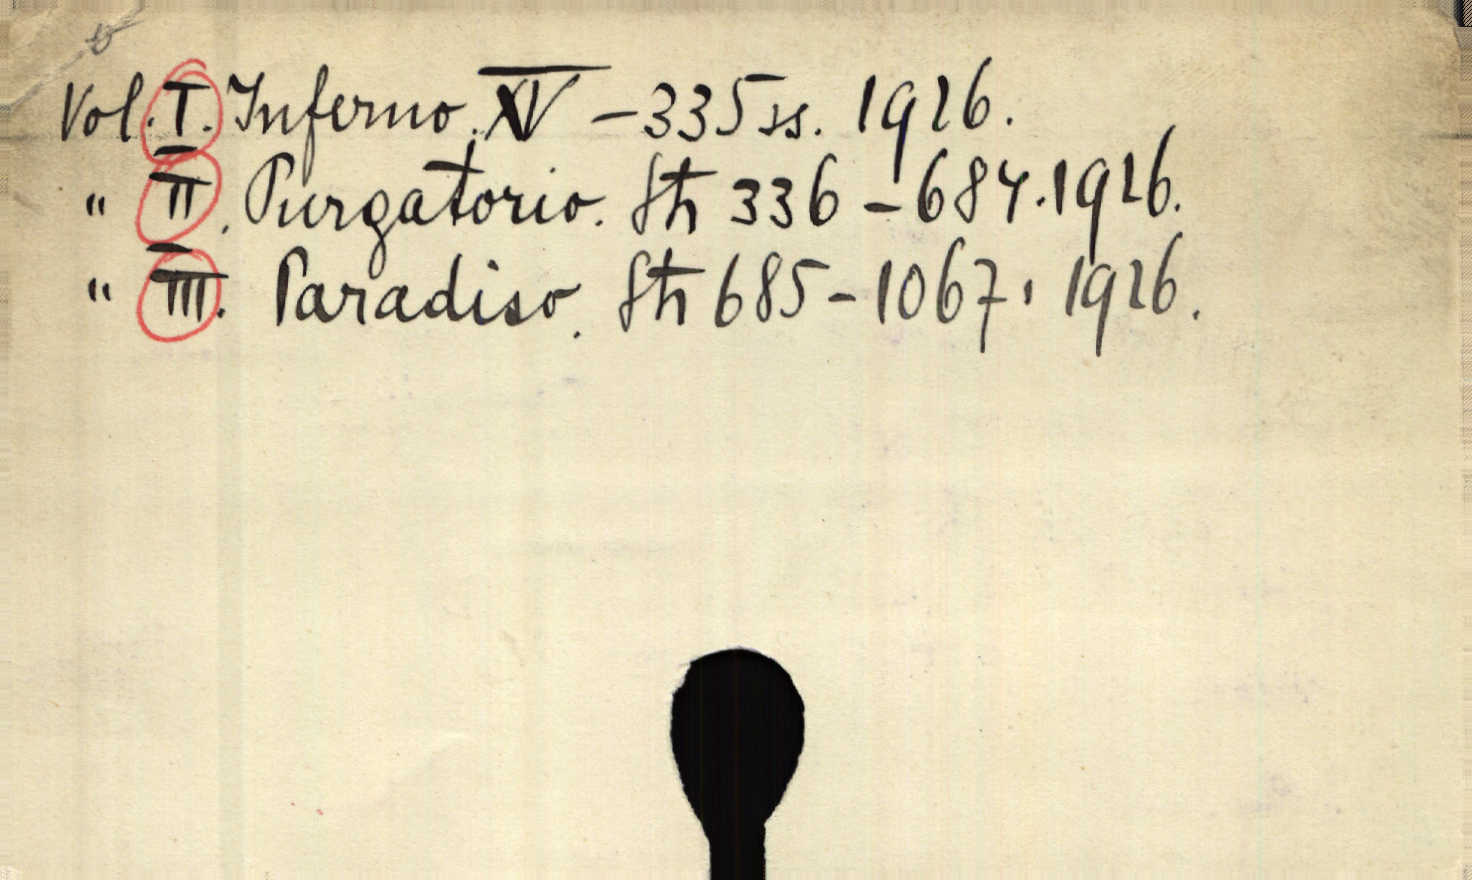 Vol. I. Inferno. XV – 335 ss. 1926.
" II. Purgatorio. Str 336 – 684. 1926.
" III. Paradiso. Str 685 – 1067. 1926.